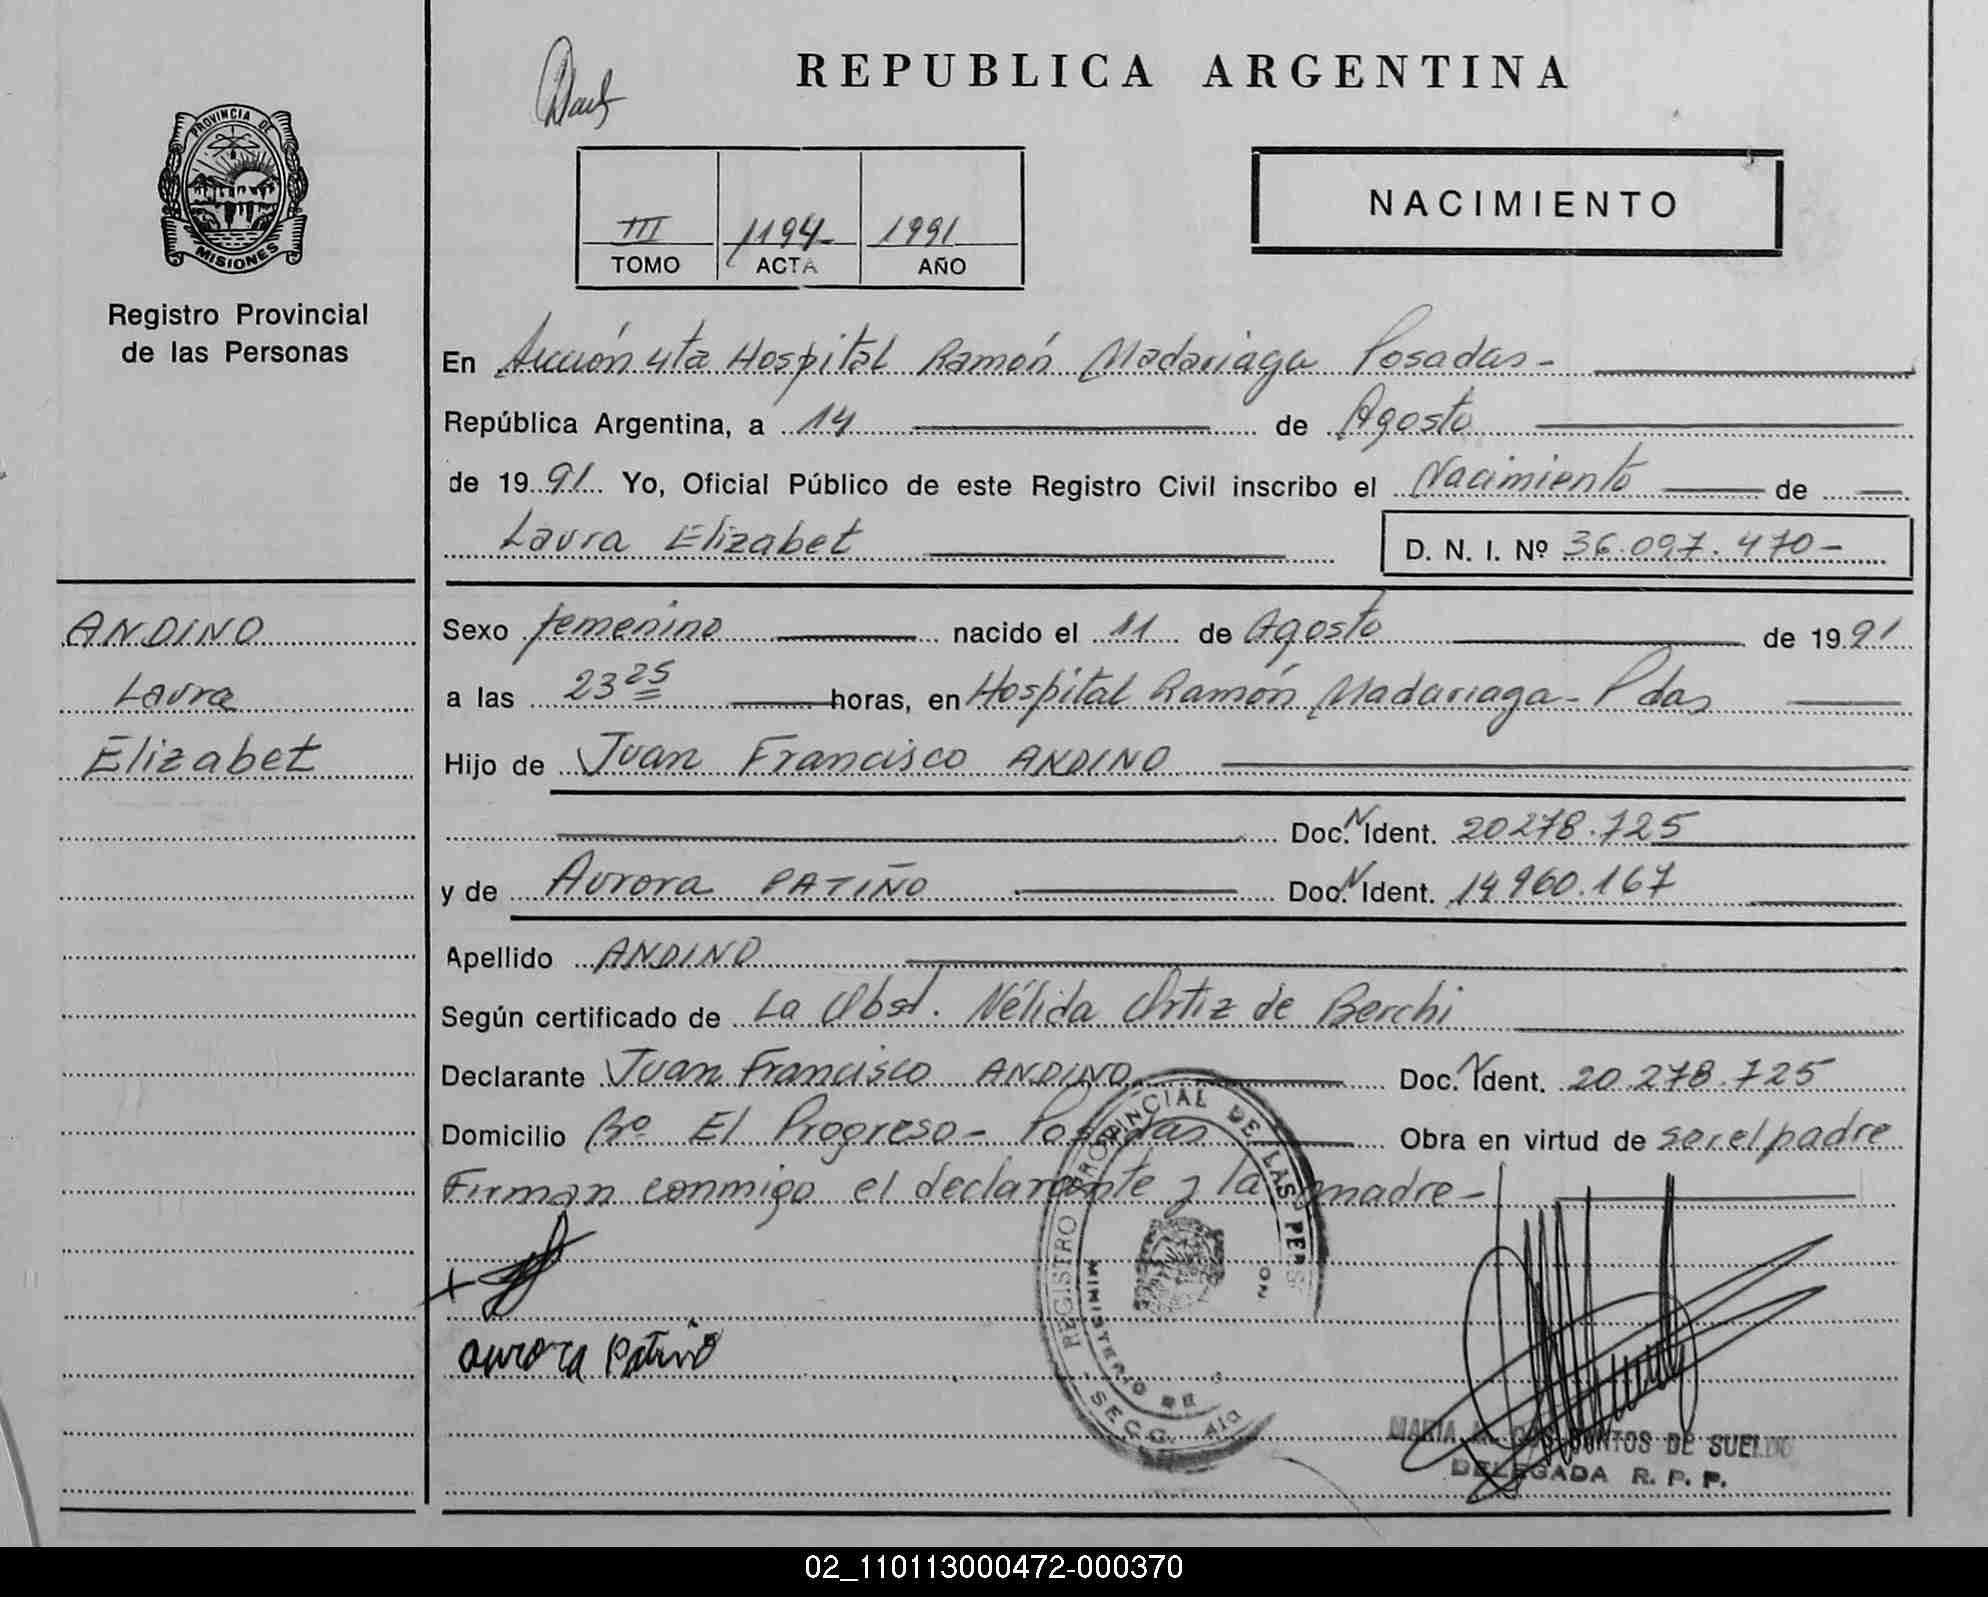 REPUBLICA ARGENTINA
PROVINCIA DE
MISIONES
Registro Provincial
de las Personas
III 1194 1991
TOMO ACTA AÑO
NACIMIENTO
En Sección 4ta Hospital Ramón Madariaga Posadas-
República Argentina, a 14 de Agosto
de 1991 Yo, Oficial Público de este Registro Civil inscribo el Nacimiento de
Laura Elizabet D. N. I. Nº 36.097.470-
ANDINO
Laura
Elizabet
Sexo femenino nacido el 11 de Agosto de 1991
a las 23 25 horas, en Hospital Ramón Madariaga- Pdas
Hijo de Juan Francisco ANDINO
Doc. N Ident. 20278.725
y de Aurora PATIÑO Doc. N Ident. 14960.167
Apellido ANDINO
Según certificado de La Obst. Nélida Ortiz de Berchi
Declarante Juan Francisco ANDINO Doc. N Ident. 20.278.725
Domicilio Bº El Progreso- Posadas Obra en virtud de ser el padre
Firman conmigo el declarante y la madre-
aurora Patiño
REGISTRO PROVINCIAL DE LAS PERS
MINISTERIO DE
SECC.
MARIA DE SUELDO
DELEGADA R. P. P.
02_110113000472-000370